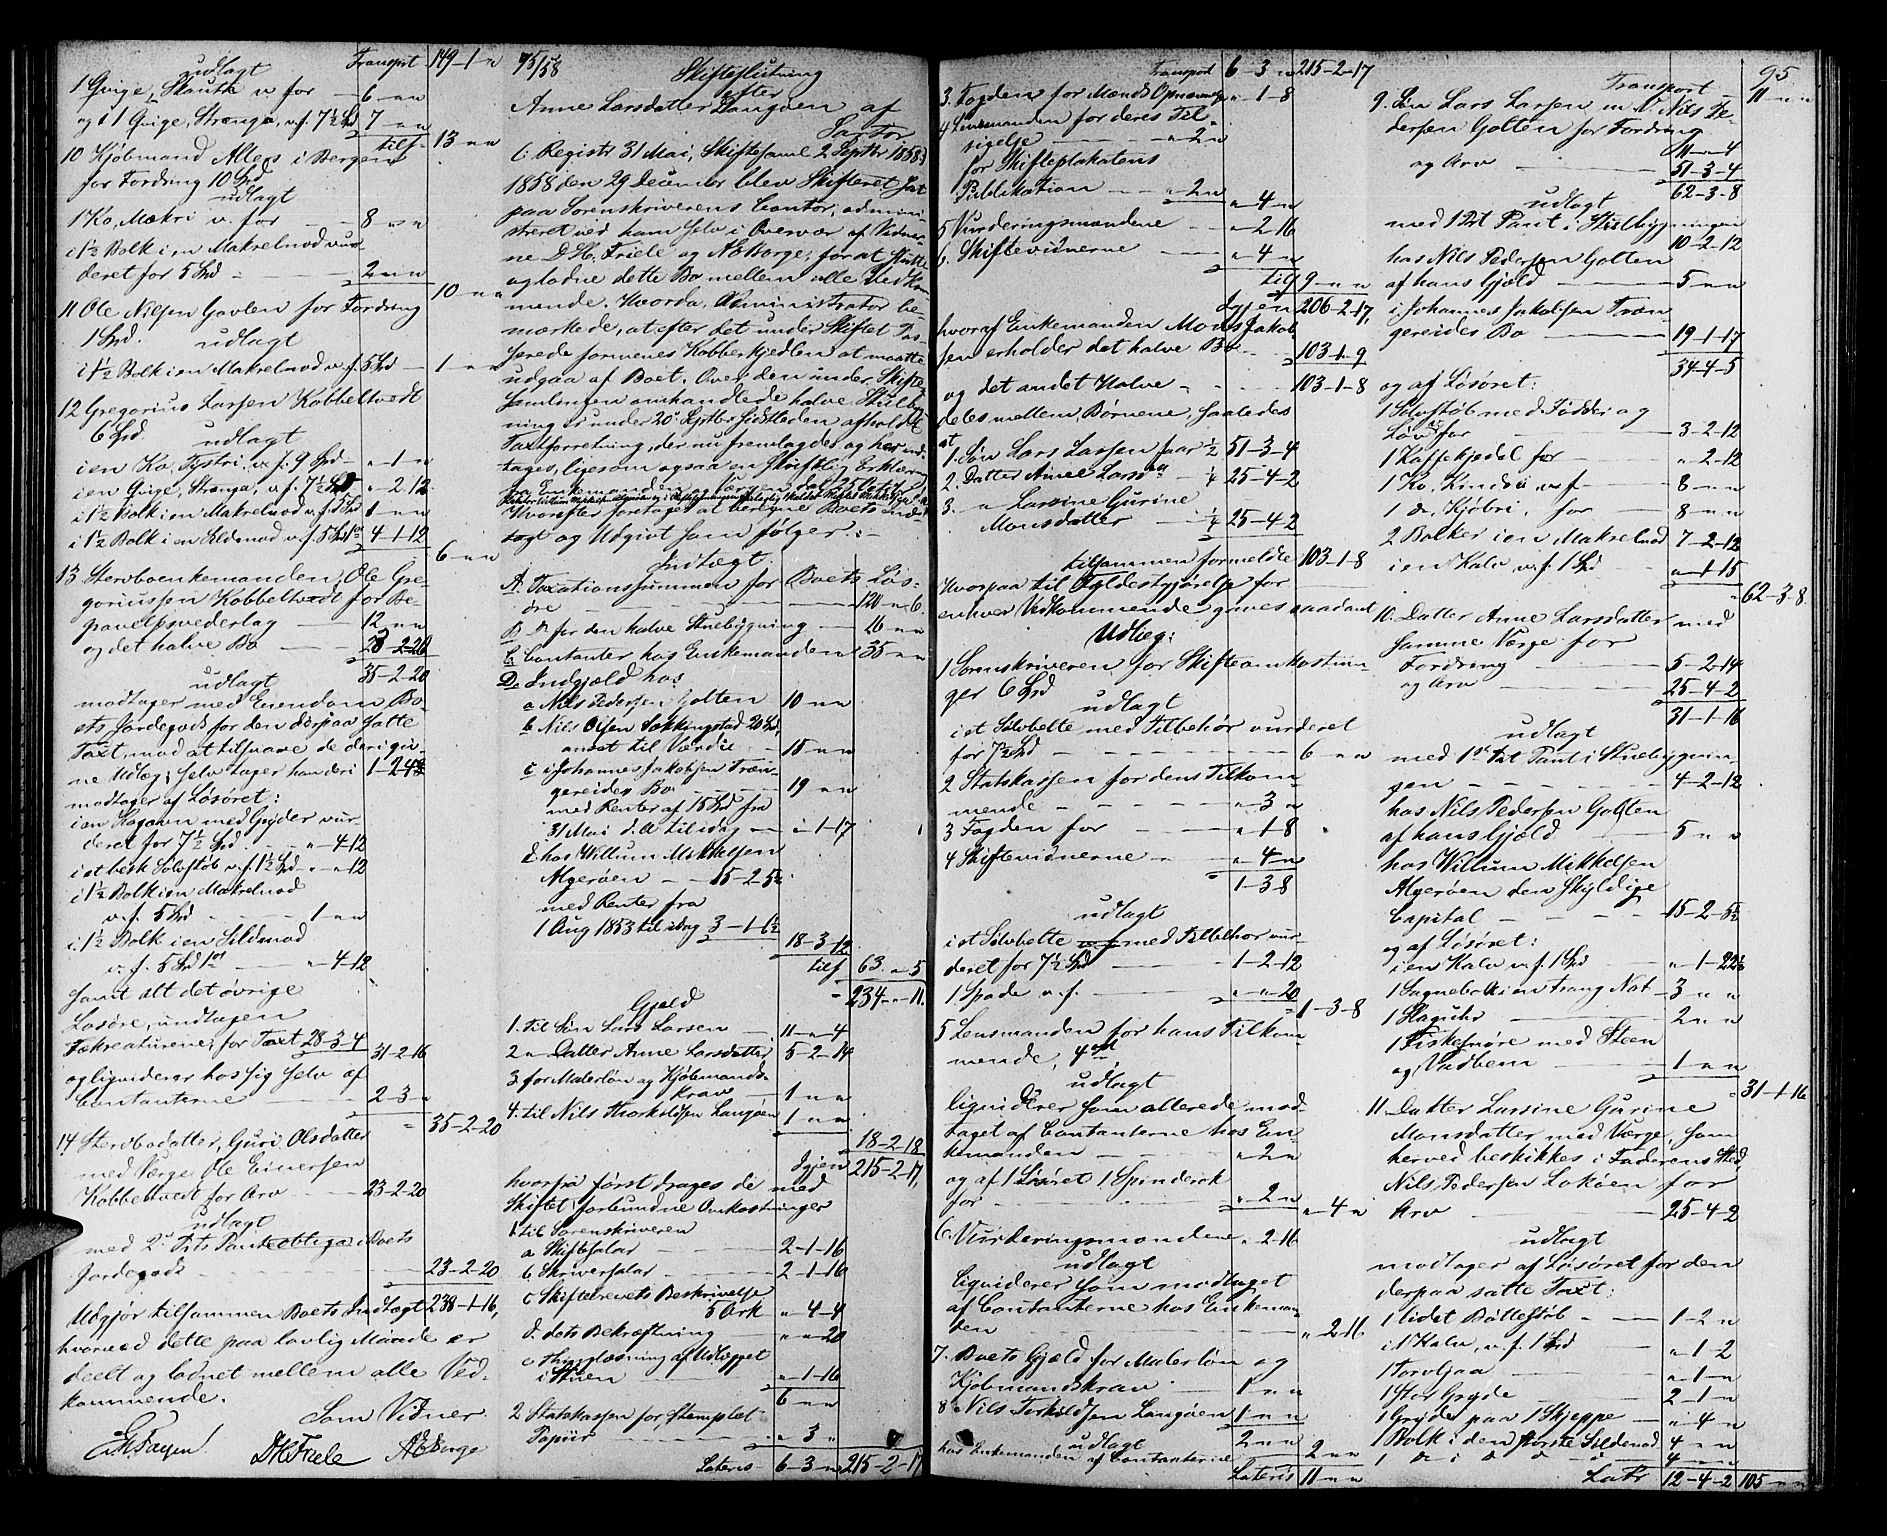 Transport 149-1-"
udlagt
1 Qvige, Skauta v for — 6-"-"
og i 1 Qvige, Stronga, v.f. 7½ Spd 7-"-"
tils. 13-"-"
10 Kjøbmand Allers i Bergen
for Fordring 10 Spd
udlagt
1 Ko, Mækri v. for — 8-"-"
i 1½ Bolk i en Makrelnod vur-
deret for 5 Spd — 2-"-"
10-"-"
11 Ole Nilsen Gavlen for Fordring
1 Spd. udlagt
i 1½ Bolk i en Makrelnod v.f. 5 Spd — 1-"-"
12 Gregorius Larsen Kobbeltvedt
6 Spd. udlagt
i en Ko, Tystri, v.f. 9 Spd — "-1-"
i en Qvige, Stronga, v.f. 7½ Spd "-2-12
i 1½ Bolk i en Makrelnod v.f. 5 Spd 1-"-"
i 1½ Bolk i en Sildenod v.f. 5 Spd 4-1-12
6-"-"
13 Stervboenkemanden, Ole Gre-
goriussen Kobbeltvedt for Be-
gravelsvederlag — 12-"-"
og det halve Bo — 23-2-20
35-2-20
udlagt
modtager med Eiendom Bo-
ets Jordegods for den derpaa satte
Taxt, mod at tilsvare de deri giv-
ne Udlæg; selv tager han deri 1-2-4
modtager af Løsøret:
i en Kagovn med Gryder vur-
deret for 7½ Spd — "-4-12
i et besk. Sølvstøb v.f. 1½ Spd "-"-12
i 1½ Bolk i en Makrelnod
v.f. 5 Spd — 1-"-"
i 1½ Bolk i en Sildenod
v.f. 5 Spd — "-4-12
samt alt det øvrige
Løsøre, undtagen
Fækreaturene, for Taxt 28-3-4
31-2-16
og liqviderer hos sig selv af
Contanterne — 2-3-"
35-2-20
14 Stervbodatter, Guri Olsdatter
med Værge Ole Einersen
Kobbeltvedt for Arv — 23-2-20
udlagt
med 2den Prts Panteobliga i Boets
Jordegods — 23-2-20
Udgjør tilsammen Boets Indtægt 238-1-16,
hvorved dette paa lovlig Maade er
deelt og lodnet mellem alle Ved-
kommende.
Som Vidner.
DHFriele AEBorge
95/58 Skifteslutning
efter
Anne Larsdatter Langøen af
Sartor
(: Registr 31 Mai, Skiftesaml 2 Septbr 1858:)
1858 den 29 December blev Skifteret sat
paa Sorenskriverens Contor, admini-
streret ved ham selv i Overvær af Vidner-
ne D.H. Friele og A.E. Borge, for at slutte
og lodne dette Bo mellem alle Vedkom-
mende. Hvorda, Administrator be-
mærkede, at efter det under Skiftet Pas-
serede formenes Kobberkjedlen at maatte
udgaa af Boet. Over den under Skifte-
samlingen omhandlede halve Stueb-
ning er under 20de Septbr sidstleden afholdt
Taxtforretning, der nu fremlagdes og her ind-
tages, ligesom ogsaa en skriftlig Erklæring
fra Enkemanden og Værgen dat. 25 October
Hvorefter foretoges at beregne Boets Ind-
tægt og Udgivt som følger:-
Indtægt
A. Taxationssummen for Boets Løs-
øre — 120-"-6.
B. Dto for den halve Stuebygning — 16-"-"
C. Contanter hos Enkemanden 35-"-"
D. Indgjæld hos
a Nils Pedersen Golten 10-"-"
b Nils Olsen Tækkingstad 20 Spd,
anset til Værdie — 15-"-"
c i Johannes Jakobsen Træn-
gereides Bo — 19-"-"
med Renter af 15 Spd fra
31 Mai d. A. til idag — "-1-17
d. hos Willum Mikkelsen
Algerøen — 15-2-5½
med Renter fra
1 Aug 1853 til idag 3-1-6½
18-3-12
tils 63-"-5
234-"-11.
Gjæld
1. til Søn Lars Larsen — 11-"-4
2 " Datter Anne Larsdatter 5-2-14
3 for Malerløn og Kjøbmands-
krav — 1-"-"
4. til Nils Thorkildsen Langøen 1-"-"
18-2-18
Igjen 215-2-17,
hvorfra først drages de med
Skiftet forbundne Omkostninger
1. til Sorenskriveren
a Skiftesalar — 2-1-16
b Skriversalar — 2-1-16
c Skiftebrevets Beskrivelse
5 Ark "-4-4
d. dets Bekræftning — "-"-20
e Thinglæsning af Udlægget
i Stuen — "-1-16
6-"-"
2 Statskassen for Stemplet
Papir — "-3-"
Lateris 6-3-" 215-2-17,
Transport 6-3-" 215-2-17
3. Fogden for Mænds Opnævnelse "-1-8
4 Lensmanden for deres Til-
sigelse — "-2-"
for Skifteplakatens
Publikation — "-2-"
"-4-"
5 Vurderingsmændene — "-2-16
6. Skiftevidnerne — "-4-"
tils 9-"-"
Igjen 206-2-17,
hvoraf Enkemanden Mons Jakob-
sen erholder det halve Bo — 103-1-9
og det andet Halve — 103-1-8
deles mellem Børnene, saaledes
at
1. Søn Lars Larsen faar ½ 51-3-4
2. Datter Anne Larsdtr — ¼ 25-4-2
3. " Larsine Gurine
Monsdatter — ¼ 25-4-2
tilsammen formeldte 103-1-8
Hvorpaa til Fyldestgjørelse for
enhver Vedkommende gaves saadant
Udlæg:
1 Sorenskriveren for Skifteomkostnin-
ger 6 Spd
udlagt
i et Sølvbelte med Tilbehør vurderet
for 7½ Spd — 6-"-"
2 Statskassen for dens Tilkom-
mende — "-3-"
3 Fogden for — "-1-8
4 Skiftevidnerne — "-4-"
1-3-8
udlagt
i et Sølvbelte v. f. med Tilbehør vur-
deret for 7½ Spd — 1-2-12
1 Spade v.f. — "-"-20
1-3-8
5 Lensmanden for hans Tilkom-
mende, 4 ort
udlagt
liqviderer som allerede mod-
taget af Contanterne hos En-
kemanden — "-2-"
og af Løsøret 1 Spinderok
for — "-2-"
"-4-"
6. Vurderingsmændene "-2-16
udlagt
liqviderer som modtaget
af Contanterne hos Enkeman-
den — "-2-16
7. Boets Gjæld for Malerløn og
Kjøbmandskrav — 1-"-"
8 Nils Torkildsen Langøen 1-"-"
2-"-"
udlagt
hos Enkemanden af Contanterne — 2-"-"
Lateris 11-"-"
95
Transport 11-"-"
9. Søn Lars Larsen m. V. Nils Pe-
dersen Golten for Fordring
11-"-4
og Arv — 51-3-4
62-3-8
udlagt
med 1 Prt Pant i Stuebygningen
10-2-12
hos Nils Pedersen Golten
af hans Gjæld — 5-"-"
i Johannes Jakobsen Træn
gereides Bo — 19-1-17
34-4-5
og af Løsøret:
1 Sølvstøb med Fødder og
Løv for — 3-2-12
1 Kaffekjedel for — "-2-12
1 Ko, Lindro v.f. — 8-"-"
1 do, Kjøbri, for — 8-"-"
2 Bolker i en Makrelnod 7-2-12
i en Kalv v.f. 1 Spd "-1-15
62-3-8.
10. Datter Anne Larsdatter med
samme Værge for
Fordring — 5-2-14
og Arv — 25-4-2
31-1-16
udlagt
med 1ste Prt Pant i Stuebygnin-
gen — 4-2-12
hos Nils Pedersen Golten
af hans Gjæld — 5-"-"
hos Willum Mikkelsen
Algerøen den skyldige
Capital — 15-2-5½
og af Løsøret:
i en Kalv v.f. 1 Spd "-1-22½
1 Sagnebolk i en trang Not — 3-"-"
1 Slaguhr — 2-"-"
1 Fiskesnøre med Steen
og Vadbein — 1-"-"
31-1-16
11. Datter Larsine Gurine
Monsdatter med Værge, som
herved beskikkes i Faderens Sted,
Nils Pedersen Lokøen for
Arv — 25-4-2
udlagt
modtager af Løsøret for den
derpaa satte Taxt:
1 lidet Bøttestøb — 1-2-"
i 1 Kalv, v.f. 1 Spd — "-1-2
1 Torvljaa — "-1-"
1 Stor Gryde — 2-1-"
1 Gryde paa 1 Skjeppe — "-4-"
1 Bolk i den største Sildenod 4-"-"
1 do i do do — 4-"-"
Latr 12-4-2 105-"-"